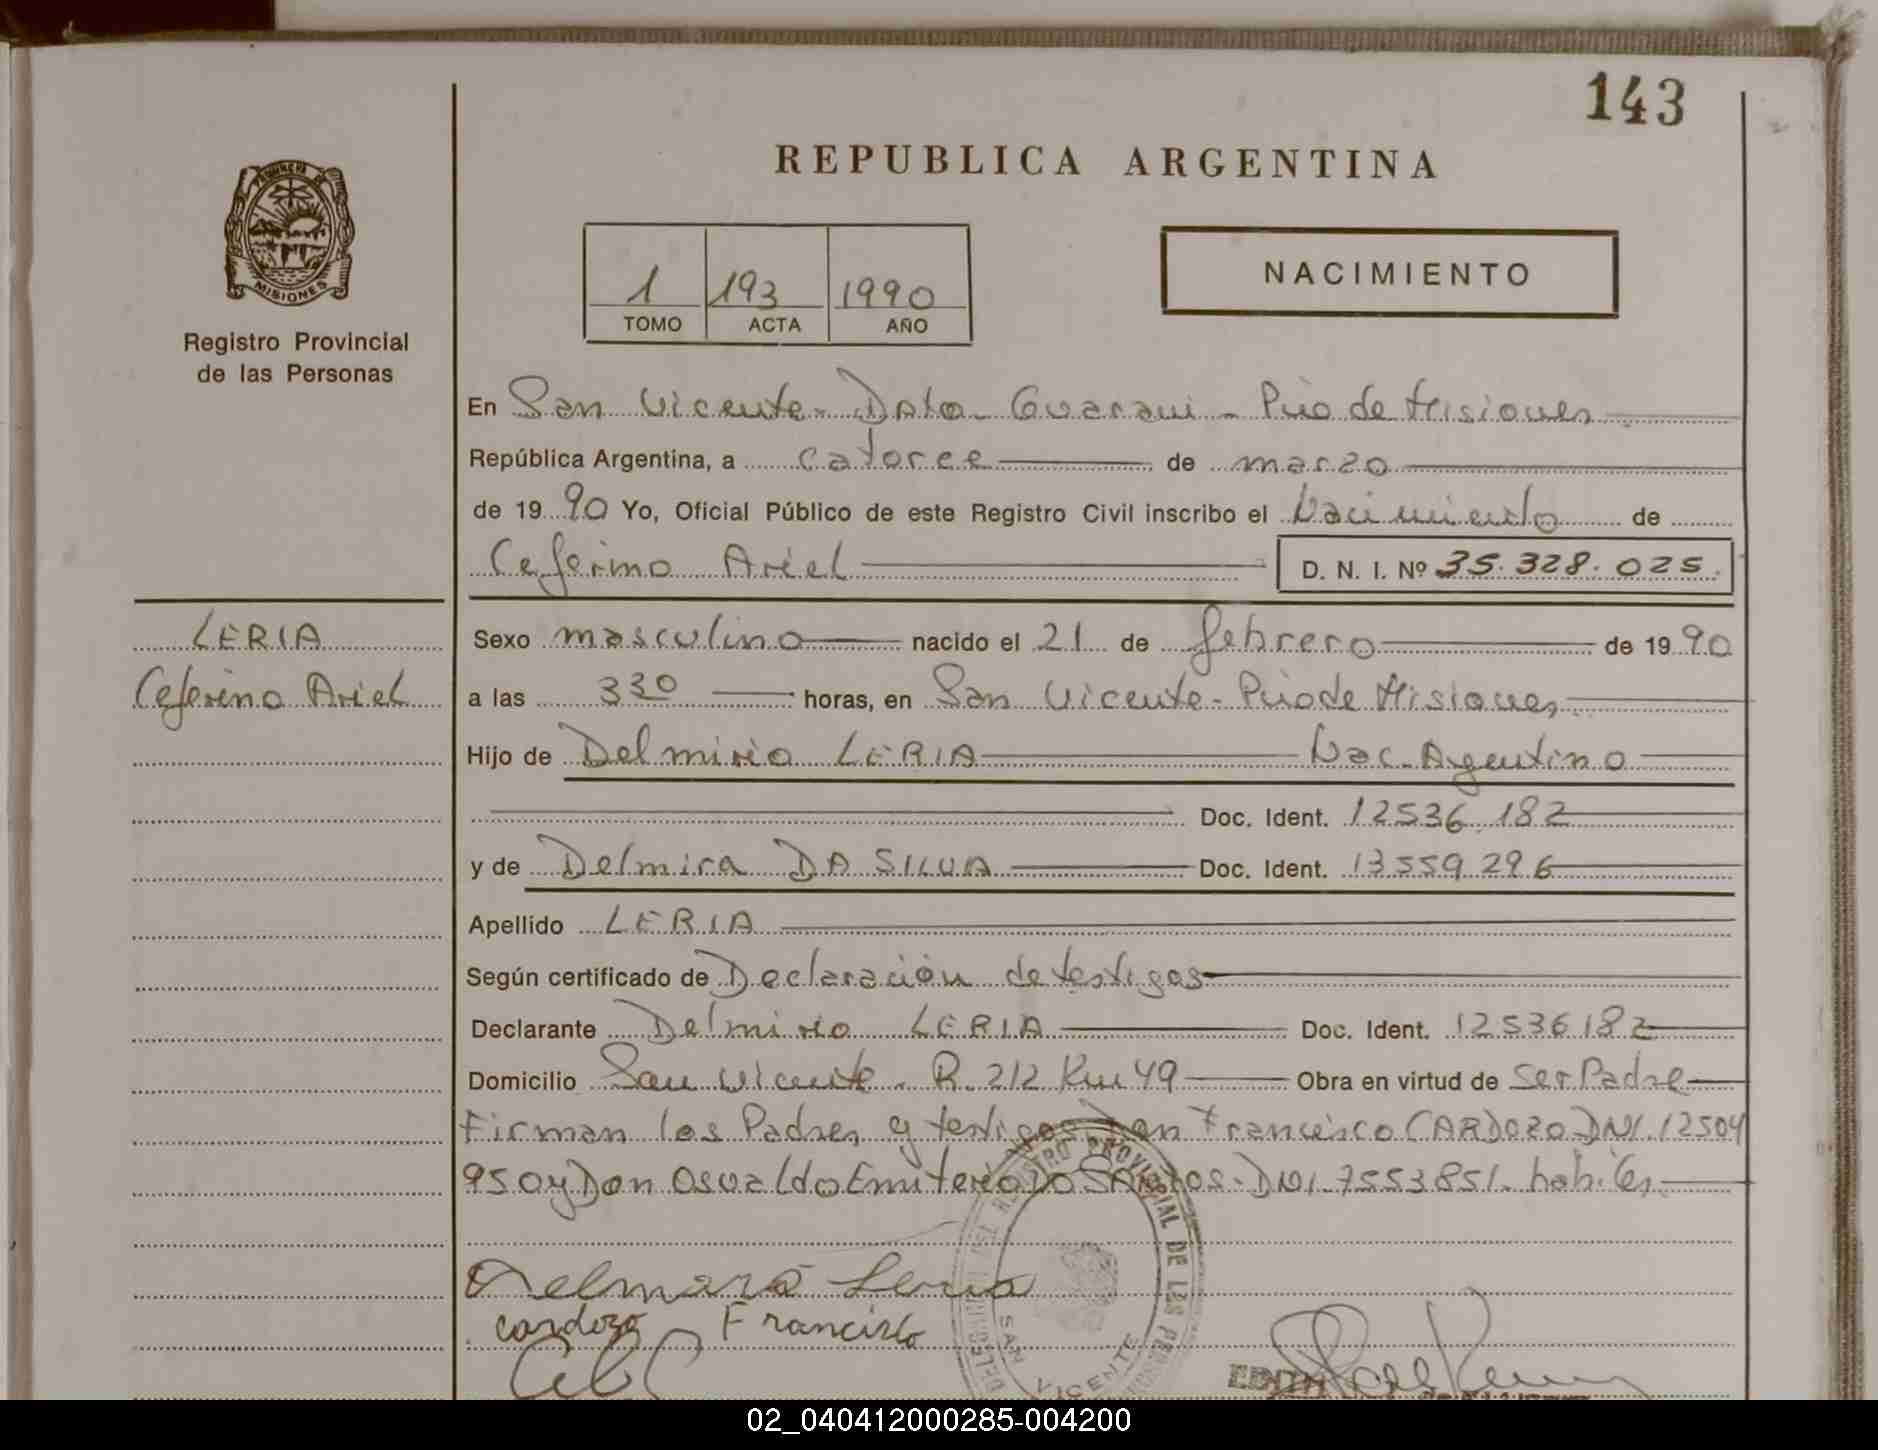 143
REPUBLICA ARGENTINA
PROVINCIA DE
MISIONES
Registro Provincial
de las Personas
1 193 1990
TOMO ACTA AÑO
NACIMIENTO
En San Vicente - Dpto - Guarani - Pcia de Misiones
República Argentina, a catorce de marzo
de 19 90 Yo, Oficial Público de este Registro Civil inscribo el Nacimiento de
Ceferino Ariel D. N. I. Nº 35.328.025.
LERIA
Ceferino Ariel
Sexo masculino nacido el 21 de febrero de 19 90
a las 330 horas, en San Vicente - Pcia de Misiones
Hijo de Delmirio LERIA Nac. Argentino
Doc. Ident. 12536.182
y de Delmira DA SILVA Doc. Ident. 13559296
Apellido LERIA
Según certificado de Declaración de testigos
Declarante Delmirio LERIA Doc. Ident. 12536182
Domicilio San Vicente - R. 212 Km 49 Obra en virtud de Ser Padre
Firman los Padres y testigos Don Francisco CARDOZO DNI. 12504
950 y Don Osvaldo Emiterio DO SANTOS - DNI. 7553851. habiles
REGISTRO PROVINCIAL DE LAS
SAN VICENTE
Leria
Cardozo Francisco
02_040412000285-004200